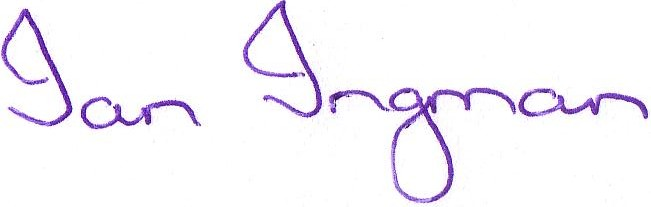 Ian Ingman